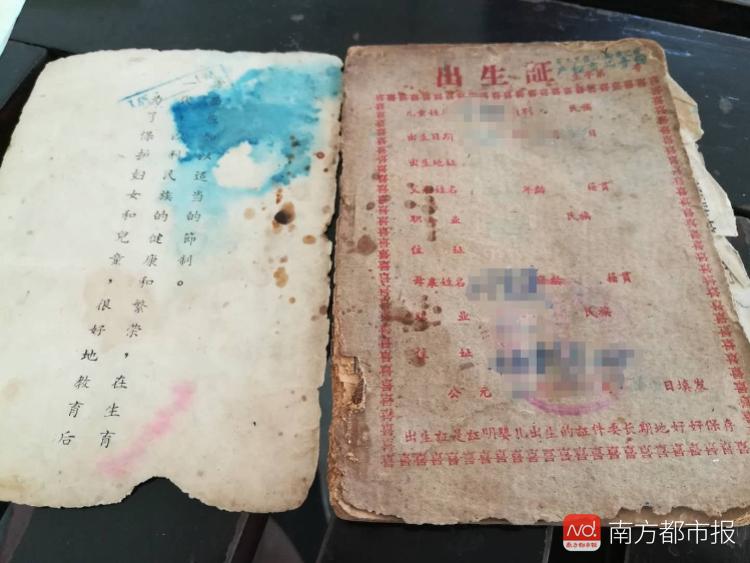 为了保护妇女和兒童，很好地教育后
利民族的健康和繁荣，在生育
以适当的節制。
出生証
兒童姓 性别 民族
出生日期 日
出生地址
父 姓名 年龄 籍貫
职 业 民族
住 址
母亲姓名 年龄 籍貫
业 民族
址
公元 日填发
出生証是証明嬰儿出生的証件要长期地好好保存
南方都市报
南方都市报